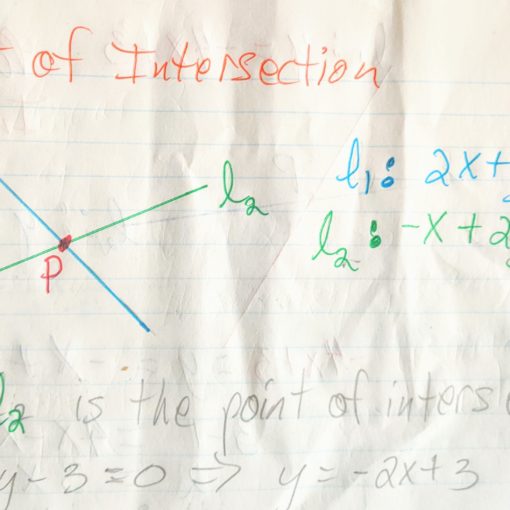 of Intersection
l₂
l₁: 2x+
l₂: -x+2
P
l₂ is the point of inters
y-3=0 ⇒ y=-2x+3